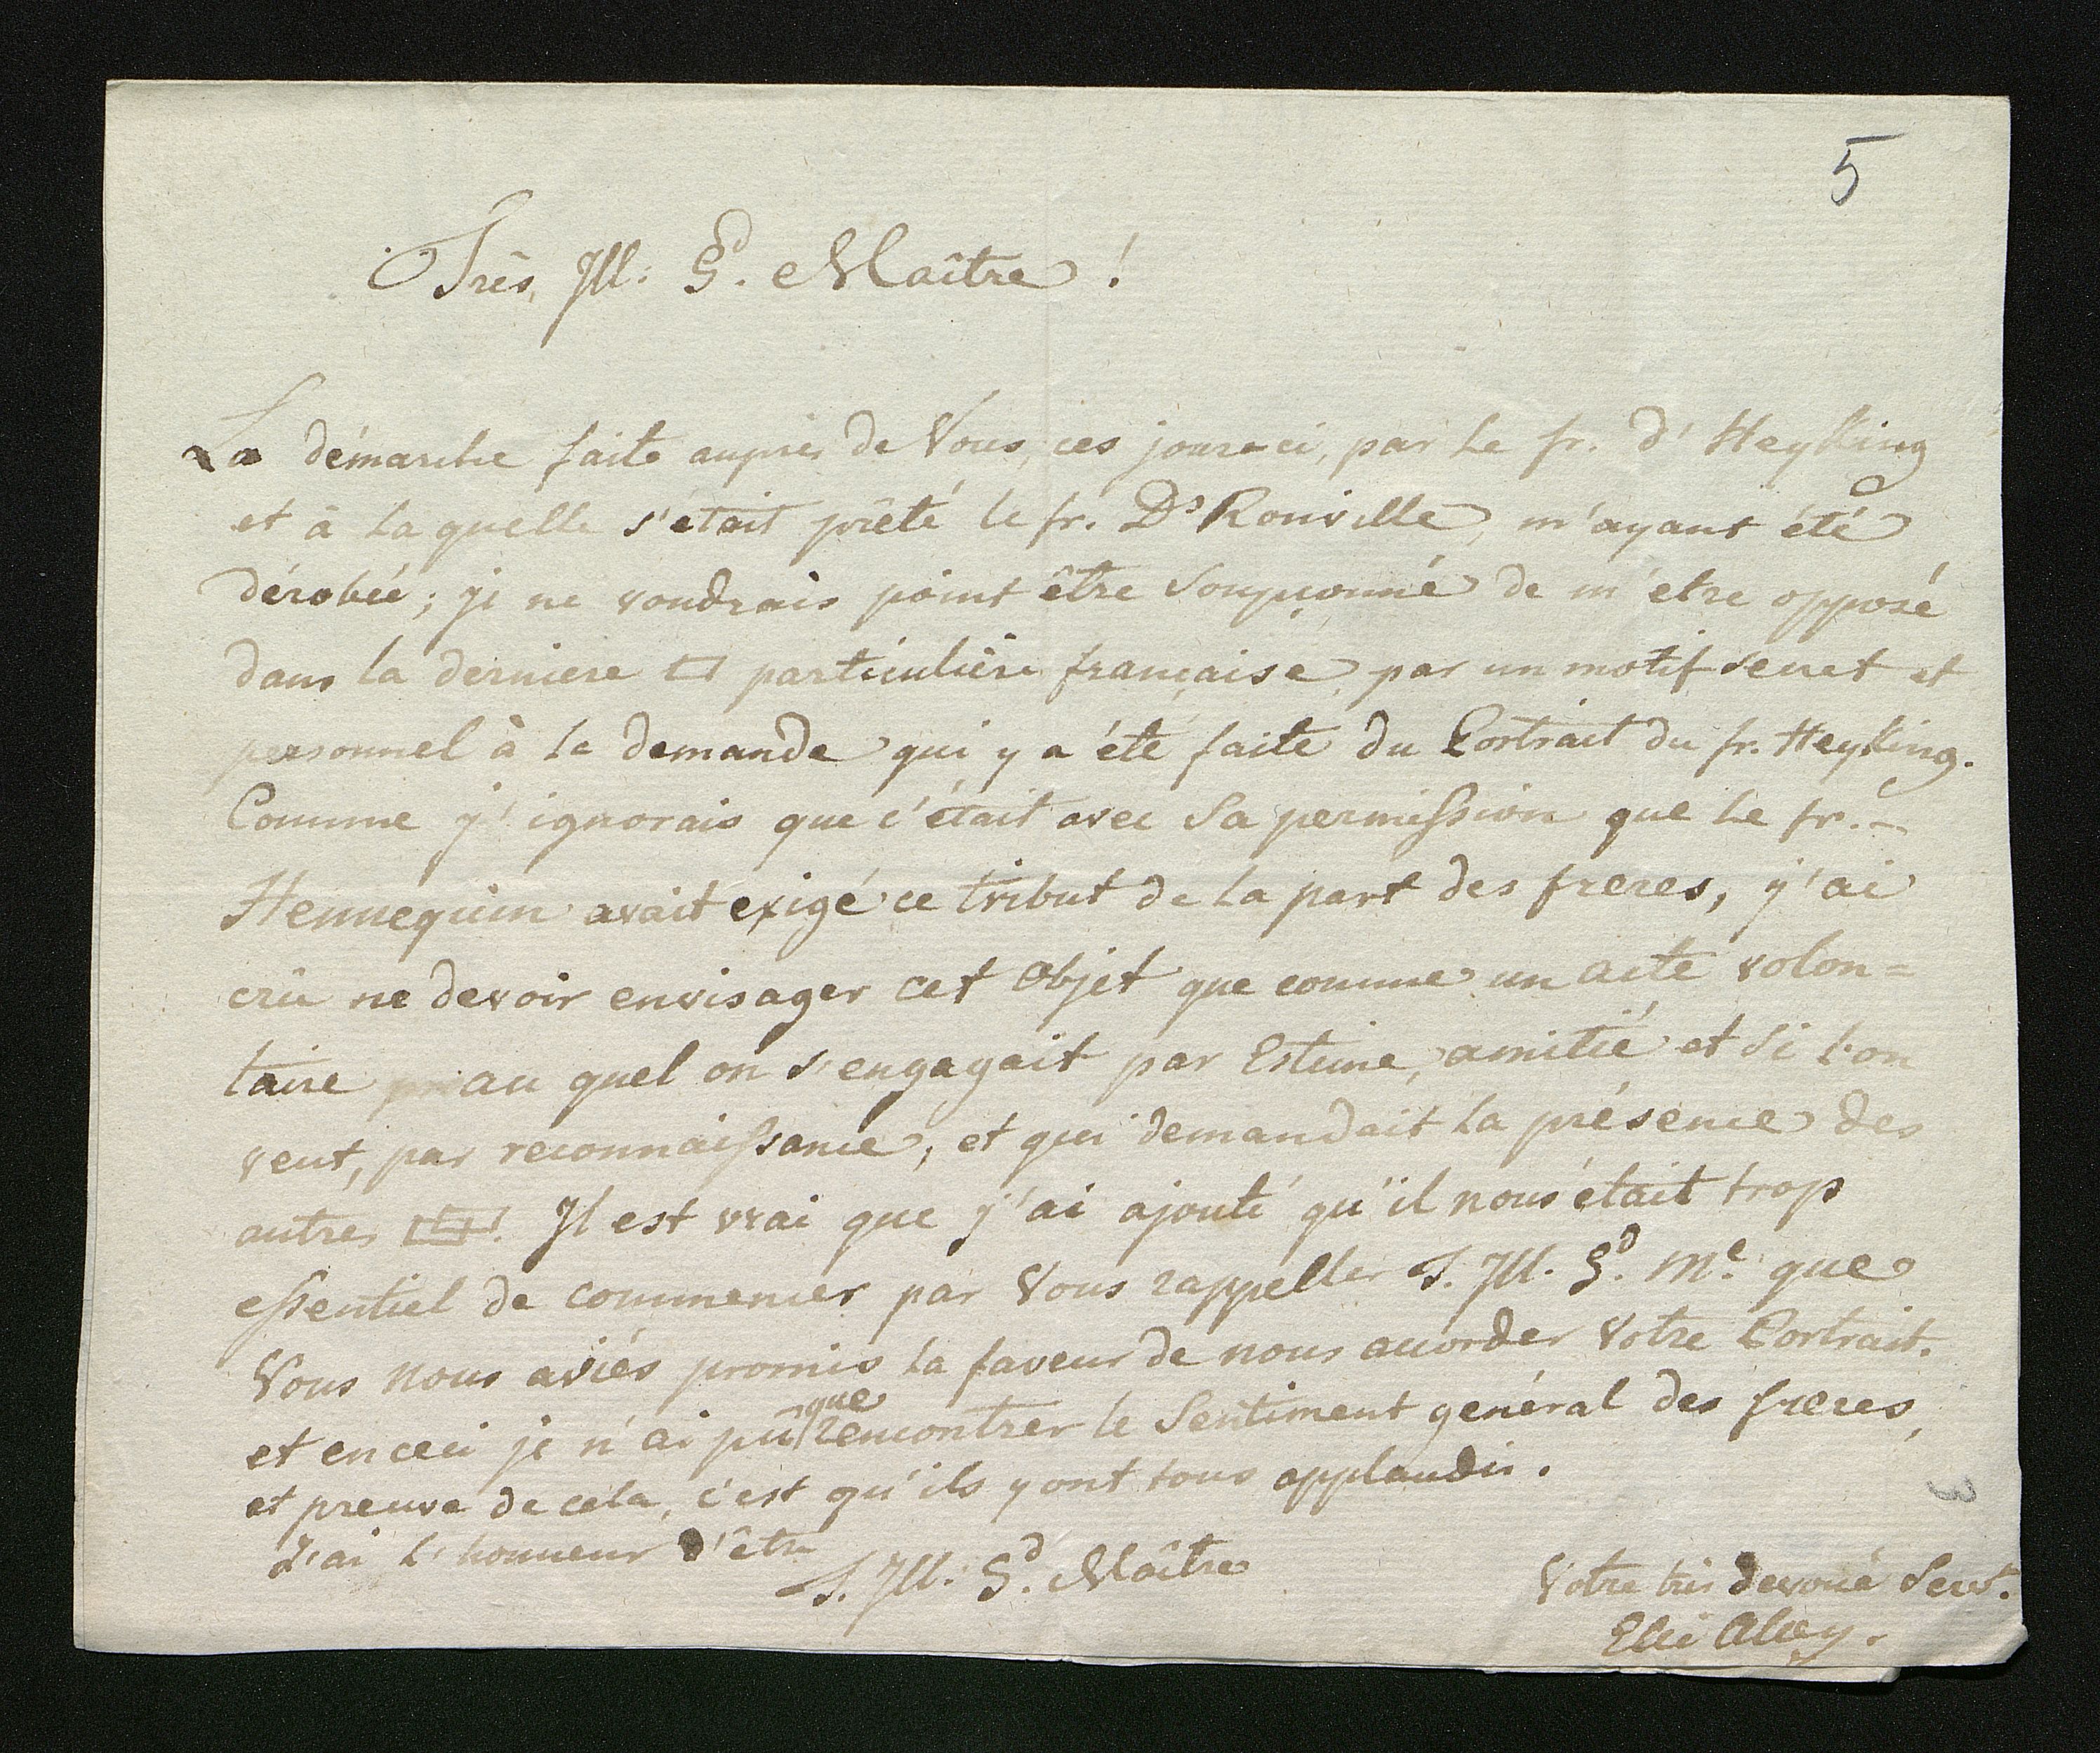 5
Très Ill: G.d Maître !
La démarche faite auprès de Vous, ces jours ci, par le fr. d'Heyking
et à laquelle s'était prêté le fr. Ds Ronville, m'ayant été
dérobée; je ne voudrais point être soupçonné de m'etre opposé
dans la derniere □ particulière française, par un motif secret et
personnel à la demande qui y a été faite du Portrait du fr. Heyking.
Comme j'ignorais que c'était avec sa permission que le fr. -
Hennequin avait exigé ce tribut de la part des freres, j'ai
crû ne devoir envisager cet Objet que comme un acte volon=
taire au quel on s'engagait par Estime, amitié et si l'on
veut, par reconnaissance, et qui demandait la présence des
autres □. Il est vrai que j'ai ajouté qu'il nous était trop
essentiel de commencer par Vous rappeller T. Ill. G.d M.e que
Vous nous aviés promis la faveur de nous accorder Votre Portrait.
et en ceci je n'ai pû que rencontrer le Sentiment général des freres,
et preuve de cela, c'est qu'ils y ont tous applaudis.
J'ai l'honneur d'être
T. Ill. G.d Maître
Votre très devoué Servt.
Elie Aloy.